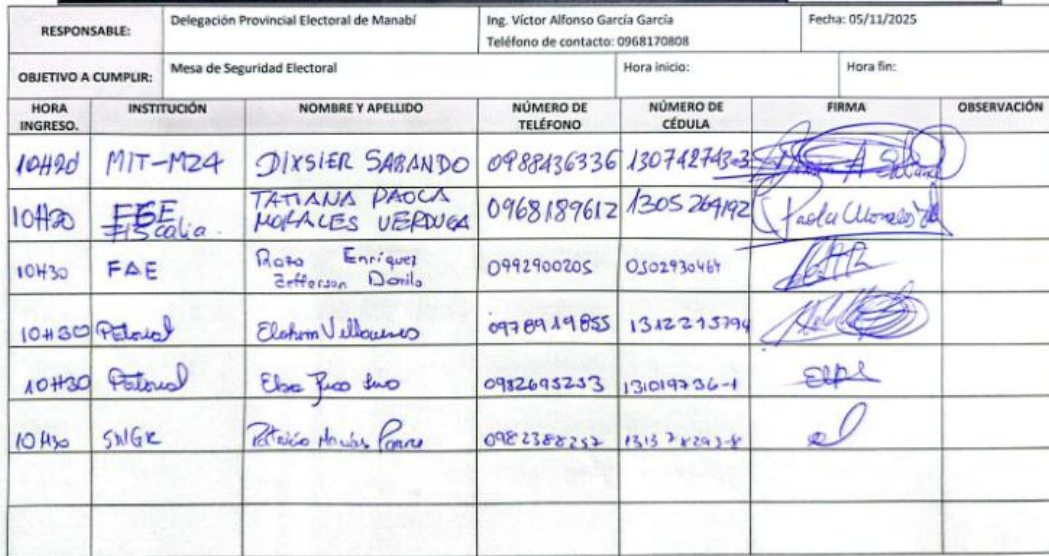 RESPONSABLE: Delegación Provincial Electoral de Manabí Ing. Víctor Alfonso García García Fecha: 05/11/2025
Teléfono de contacto: 0968170808
OBJETIVO A CUMPLIR: Mesa de Seguridad Electoral Hora inicio: Hora fin:
HORA INGRESO. INSTITUCIÓN NOMBRE Y APELLIDO NÚMERO DE TELÉFONO NÚMERO DE CÉDULA FIRMA OBSERVACIÓN
10H20 MIT-M24 DIXSIER SABANDO 0988436336 130742743-3
10H20 FGE Fiscalia. TATIANA PAOLA MORALES VERDUGA 0968189612 1305264192 Paola Morales
10H30 FAE Razo Enríquez Jefferson Danilo 0992900205 0502930464
10H30 0978919855 1312215794
10H30 Elsa 0982695253 131019736-1
10H30 SNGR Patricio Macías Ponce 0982388257